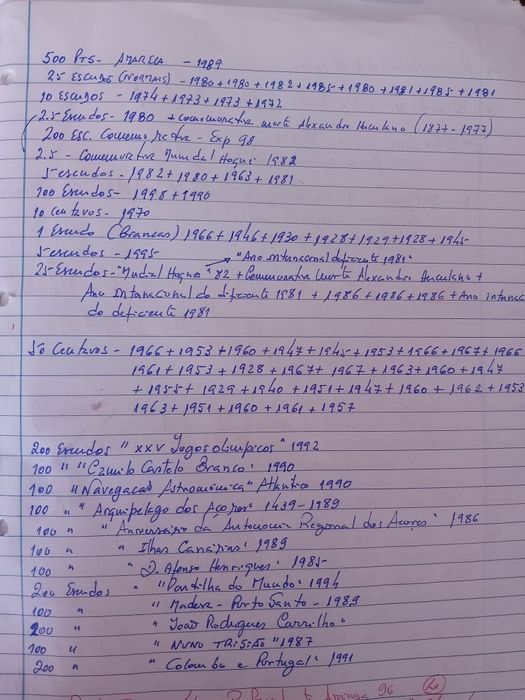 500 Pts - Amarela - 1989
25 Escudos (Normais) - 1980 + 1980 + 1982 + 1985 + 1980 + 1981 + 1985 + 1981
10 Escudos - 1974 + 1973 + 1973 + 1972
2.5 Escudos - 1980 + comemorativa morte Alexandre Herculano (1877-1977)
200 Esc. Comemorativa - Exp 98
2.5 - Comemorativa Mundial Hoquei 1982
5 escudos - 1982 + 1980 + 1963 + 1981
100 Escudos - 1998 + 1990
10 Centavos - 1970
1 Escudo (Brancas) 1966 + 1946 + 1930 + 1928 + 1929 + 1928 + 1945
5 escudos - 1995 "Ano internacional deficiente 1981"
25 Escudos - "Mundial Hoquei" 82 + Comemorativa Morte Alexandre Herculano +
Ano internacional do deficiente 1981 + 1986 + 1986 + 1986 + Ano
do deficiente 1981
50 Centavos - 1966 + 1953 + 1960 + 1947 + 1945 + 1953 + 1966 + 1967 + 1966
1961 + 1953 + 1928 + 1967 + 1967 + 1963 + 1960 + 1947
+ 1955 + 1929 + 1940 + 1951 + 1947 + 1960 + 1962 + 1953
1963 + 1951 + 1960 + 1961 + 1957
200 Escudos "XXV Jogos olimpicos" 1992
100 " "Camilo Castelo Branco" 1990
100 "Navegacao Astronómica" Atlantico 1990
100 " "Arquipelago dos Açores" 1439-1989
100 " "Aniversario da Autonomia Regional dos Açores" 1986
100 " " Ilhas Canárias" 1989
100 " "D. Afonso Henriques" 1985
200 Escudos " "Partilha do Mundo" 1994
100 " "Madeira - Porto Santo - 1989
200 " "João Rodrigues Carrilho"
100 " "NUNO TRISTÃO" 1987
200 " "Colombo e Portugal" 1991
96